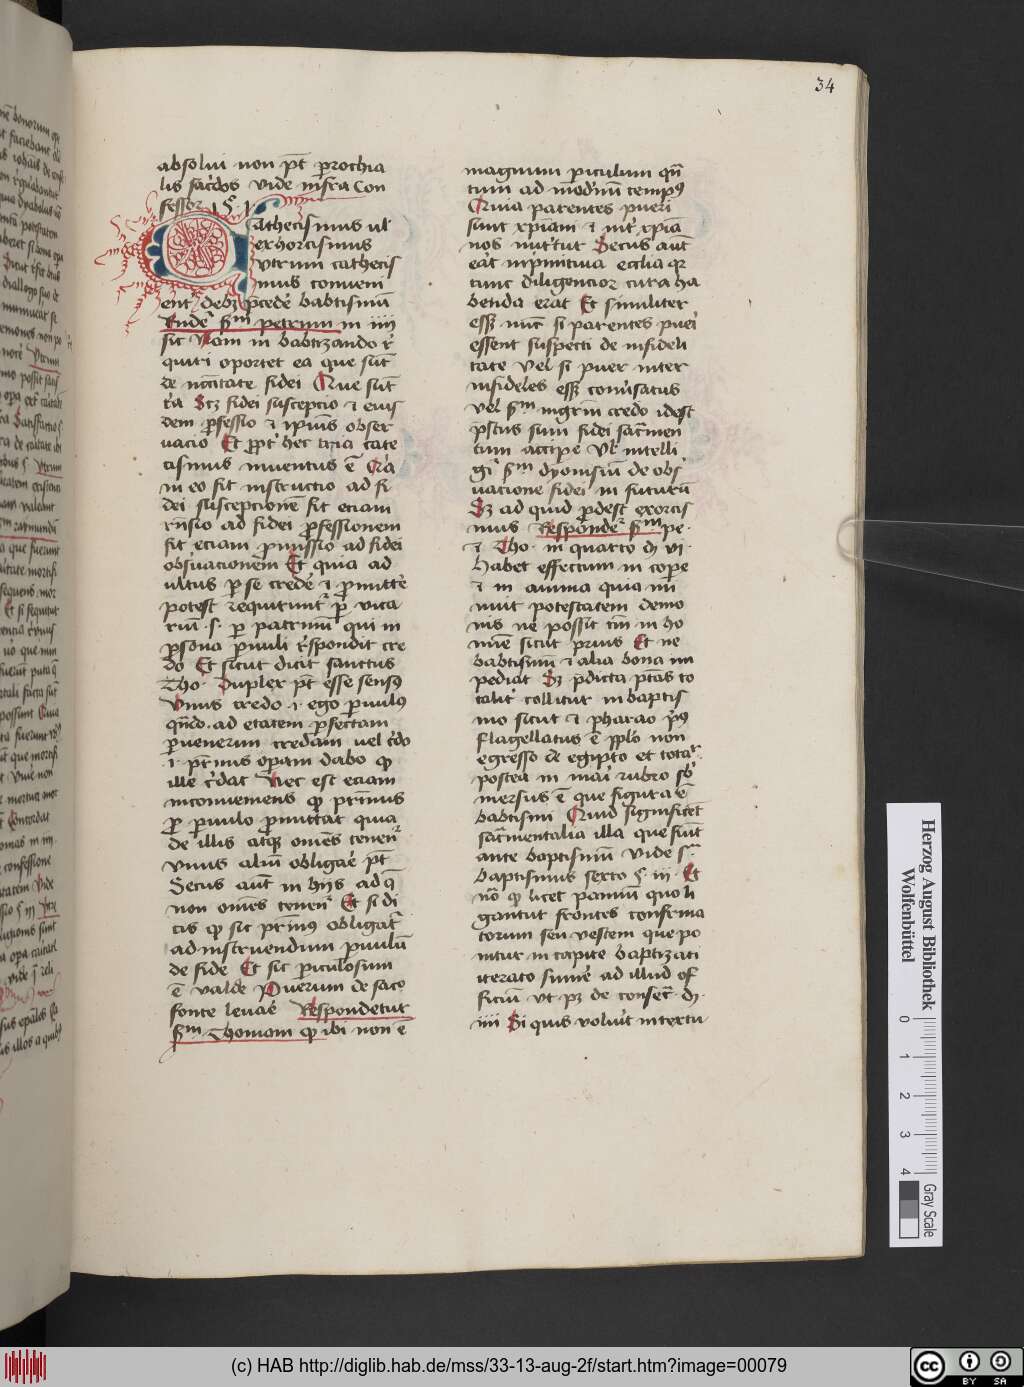 34
absolui non pt prochia
lis sacdos vide infra Con
fessor 1 §. 1.
Cathecismus vl
exhorcismus
vtrum cathecis
mus conueni
ent debz pcede babtismu
Rnde sm petrum in iiii
sic Nam in babtizando r
quiri oportet ea que sut
de ncitate fidei Que sut
tria Scz fidei suscepcio et eius
dem pfessio et ipius obser
uacio Et ppt hec tria cate
cismus inuentus e Qia
in eo fit instructio ad fi
dei suscepcionem fit eciam
rnsio ad fidei pfessionem
fit eciam pmissio ad fidei
obsuacionem Et quia ad
ultus p se crede et pmitte
potest requiruntr p vica
riu .s. p patrinu qui in
psona puuli rspondit cre
do Et sicut dicit sanctus
Tho. Duplex pt esse sensus
Vnus credo .i. ego puulus
qndo. ad etatem pfectam
puenerim credam uel cdo
.i. ptinus opam dabo qp
ille cdat Nec est eciam
inconueniens qp ptrinus
p puulo pmittat quia
de illis atqz omes tenent
vnus aliu obligae pt
Secus aut in hijs ad q
non omes tenent Et si di
cis qp sic ptrinus obligatr
ad instruendum puulu
de fide Et sic piculosum
e valde Puerum de saco
fonte leuae Respondetur
sm Thomam qp ibi non e
magnum piculum qn
tum ad modnu tempus
Quia parentes pueri
sunt xpiani et int xpia
nos nutritur Secus aut
eat in pmitiua ecclia qr
tunc diligencior cura ha
benda erat Et similiter
essz nuc si parentes pueri
essent suspecti de infideli
tate vel si puer inter
infideles essz conusatus
vel sm ingrin credo idest
psctus sum fidei sacmen
tum accipe vl intelli
gi sm dyonisiu de obs
uacione fidei in futuru
Sz ad quid pdest exorcis
mus Respondetr sm pe.
et Tho. in quarto di vi.
habet effectum in corpe
et in anima quia mi
nuit potestatem demo
nis ne possit tm in ho
mine sicut prius Et ne
babtismu et alia bona im
pediat Sz pdicta ptas to
talit tollitur in baptis
mo sicut et pharao prius
flagellatus e pplo non
egresso de egipto et totalr
postea in mai rubro sb
mersus e que figura e
babtismi Quid significet
sacmentalia illa que fiut
ante baptismu vide sa
baptismus sexto § iii. Et
no qp licet pannu quo li
gantur frontes confirma
torum seu vestem que po
nitur in capite baptizati
iterato sume ad illud of
ficiu vt pz de consecr. di.
iiii Si quis voluit in extu
Herzog August Bibliothek
Wolfenbüttel
0 1 2 3 4
Gray Scale
(c) HAB http://diglib.hab.de/mss/33-13-aug-2f/start.htm?image=00079
cc BY SA